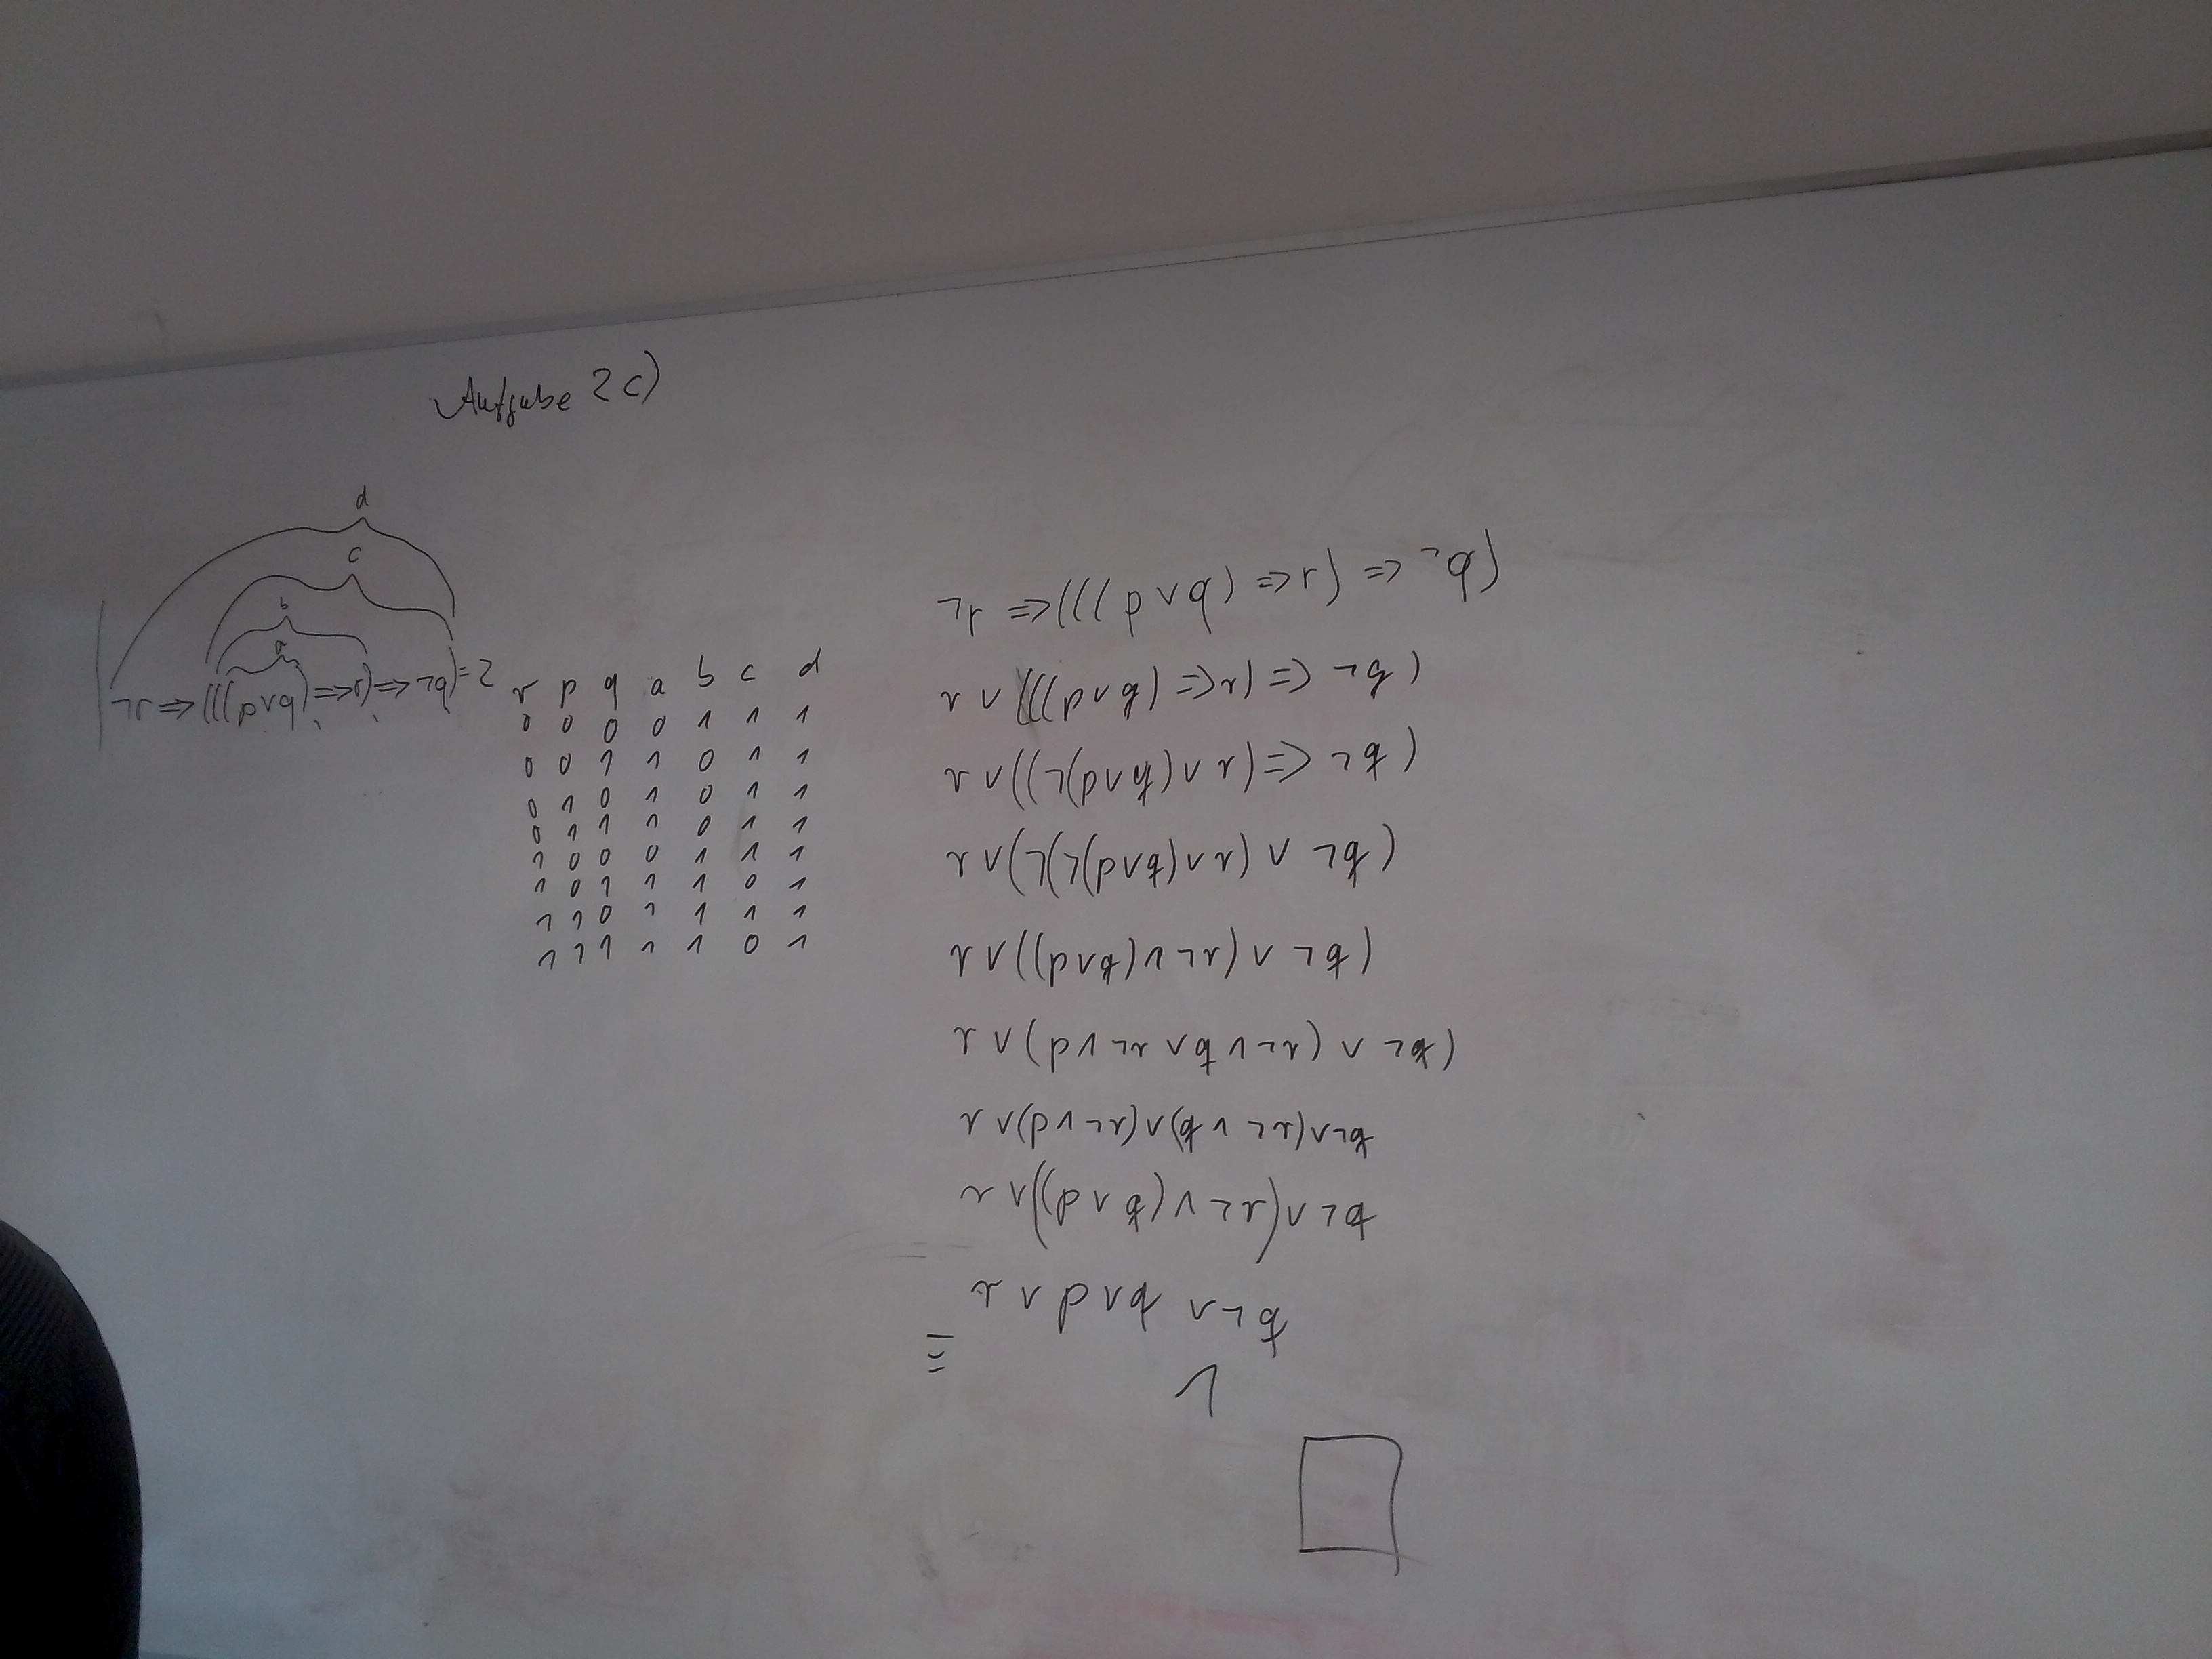 Aufgabe 2 c)
d
c
b
a
¬r => (((p∨q) => r) => ¬q) = 2
r p q a b c d
0 0 0 0 1 1 1
0 0 1 1 0 1 1
0 1 0 1 0 1 1
0 1 1 1 0 1 1
1 0 0 0 1 1 1
1 0 1 1 1 0 1
1 1 0 1 1 1 1
1 1 1 1 1 0 1
¬r => (((p ∨ q) => r) => ¬q)
r ∨ (((p ∨ q) => r) => ¬q)
r ∨ ((¬(p ∨ q) ∨ r) => ¬q)
r ∨ (¬(¬(p ∨ q) ∨ r) ∨ ¬q)
r ∨ ((p ∨ q) ∧ ¬r) ∨ ¬q)
r ∨ (p ∧ ¬r ∨ q ∧ ¬r) ∨ ¬q)
r ∨ (p ∧ ¬r) ∨ (q ∧ ¬r) ∨ ¬q
r ∨ ((p ∨ q) ∧ ¬r) ∨ ¬q
r ∨ p ∨ q ∨ ¬q
≡ 1